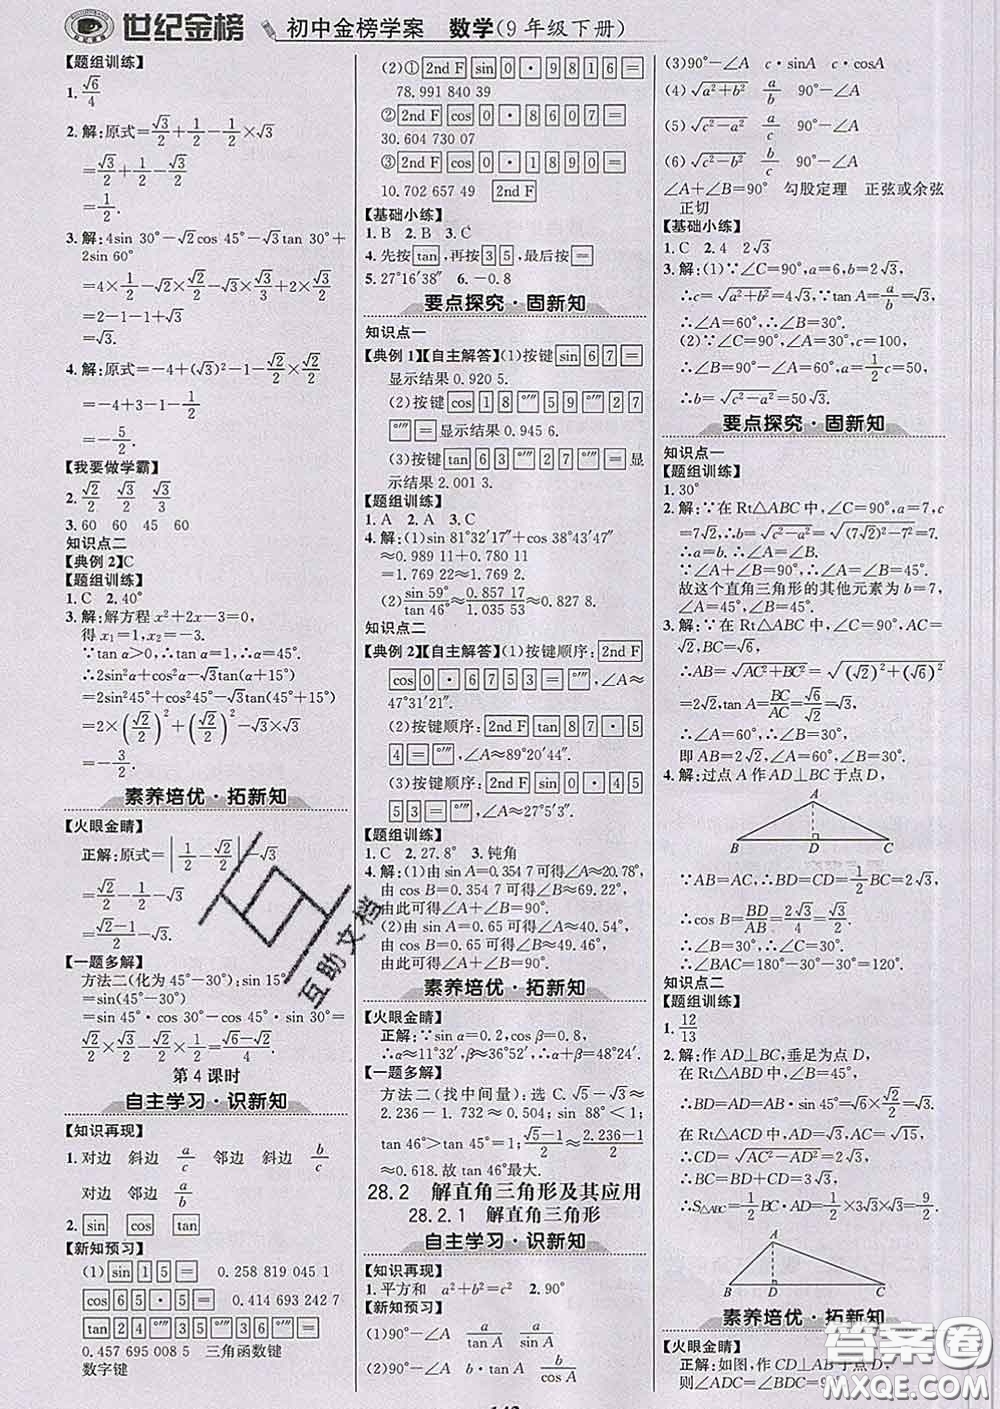 世纪金榜 初中金榜学案 数学(9年级下册)
【题组训练】
1. √6/4
2. 解:原式=√3/2+1/2-1/2×√3
=√3/2+1/2-√3/2
=1/2.
3. 解:4sin 30°-√2cos 45°-√3tan 30°+
2sin 60°
=4×1/2-√2×√2/2-√3×√3/3+2×√3/2
=2-1-1+√3
=√3.
4. 解:原式=-4+(√3)²-1-√2/2×√2/2
=-4+3-1-1/2
=-5/2.
【我要做学霸】
2. √2/2 √3/3 √3/2
3. 60 60 45 60
知识点二
【典例 2】C
【题组训练】
1. C 2. 40°
3. 解:解方程 x²+2x-3=0,
得 x₁=1,x₂=-3.
∵tan α>0,∴tan α=1,∴α=45°.
∴2sin²α+cos²α-√3tan(α+15°)
=2sin²45°+cos²45°-√3tan(45°+15°)
=2×(√2/2)²+(√2/2)²-√3×√3
=-3/2.
素养培优·拓新知
【火眼金睛】
正解:原式=|1/2-√2/2|-√3
=√2/2-1/2-√3.
【一题多解】
方法二(化为 45°-30°):sin 15°
=sin(45°-30°)
=sin 45°·cos 30°-cos 45°·sin 30°
=√2/2×√3/2-√2/2×1/2=(√6-√2)/4.
第 4 课时
自主学习·识新知
【知识再现】
1. 对边 斜边 a/c 邻边 斜边 b/c
对边 邻边 a/b
2. sin cos tan
【新知预习】
(1) sin 1 5 = 0.258 819 045 1
cos 6 5 · 5 = 0.414 693 242 7
tan 2 4 °′″ 3 5 °′″ 3 6 °′″ =
0.457 695 008 5 三角函数键
数字键
(2)① 2nd F sin 0 · 9 8 1 6 =
78.991 840 39
② 2nd F cos 0 · 8 6 0 7 =
30.604 730 07
③ 2nd F cos 0 · 1 8 9 0 =
10.702 657 49 2nd F
【基础小练】
1. B 2. B 3. C
4. 先按 tan ,再按 3 5 ,最后按 =
5. 27°16′38″ 6. -0.8
要点探究·固新知
知识点一
【典例 1】【自主解答】(1)按键 sin 6 7 =
显示结果 0.920 5.
(2)按键 cos 1 8 °′″ 5 9 °′″ 2 7
°′″ = 显示结果 0.945 6.
(3)按键 tan 6 3 °′″ 2 7 °′″ = 显
示结果 2.001 3.
【题组训练】
1. A 2. A 3. C
4. 解:(1)sin 81°32′17″+cos 38°43′47″
≈0.989 11+0.780 11
=1.769 22≈1.769 2.
(2)sin 59°/tan 46°≈0.857 17/1.035 53≈0.827 8.
知识点二
【典例 2】【自主解答】(1)按键顺序: 2nd F
cos 0 · 6 7 5 3 = °′″ ,∠A≈
47°31′21″.
(2)按键顺序: 2nd F tan 8 7 · 5
4 = °′″ ,∠A≈89°20′44″.
(3)按键顺序: 2nd F sin 0 · 4 5
5 3 = °′″ ,∠A≈27°5′3″.
【题组训练】
1. C 2. 27.8° 3. 钝角
4. 解:(1)由 sin A=0.354 7 可得∠A≈20.78°,
由 cos B=0.354 7 可得∠B≈69.22°,
由此可得∠A+∠B=90°.
(2)由 sin A=0.65 可得∠A≈40.54°,
由 cos B=0.65 可得∠B≈49.46°,
由此可得∠A+∠B=90°.
素养培优·拓新知
【火眼金睛】
正解:∵sin α=0.2,cos β=0.8,
∴α≈11°32′,β≈36°52′,∴α+β=48°24′.
【一题多解】
方法二(找中间量):选 C.√5-√3≈
2.236-1.732≈0.504;sin 88°<1;
tan 46°>tan 45°=1;(√5-1)/2≈(2.236-1)/2
≈0.618.故 tan 46°最大.
28.2 解直角三角形及其应用
28.2.1 解直角三角形
自主学习·识新知
【知识再现】
1. 平方和 a²+b²=c² 2. 90°
【新知预习】
(1)90°-∠A a/tan A a/sin A
(2)90°-∠A b·tan A b/cos A
(3)90°-∠A c·sinA c·cosA
(4)√(a²+b²) a/b 90°-∠A
(5)√(c²-a²) a/c 90°-∠A
(6)√(c²-b²) b/c 90°-∠A
∠A+∠B=90° 勾股定理 正弦或余弦
正切
【基础小练】
1. C 2. 4 2√3
3. 解:(1)∵∠C=90°,a=6,b=2√3,
∴c=√(a²+b²)=4√3,∵tan A=a/b=√3,
∴∠A=60°,∴∠B=30°.
(2)∵∠C=90°,∠A=30°,c=100,
∴∠B=90°-∠A=60°,a=1/2c=50,
∴b=√(c²-a²)=50√3.
要点探究·固新知
知识点一
【题组训练】
1. 30°
2. 解:∵在 Rt△ABC 中,∠C=90°,a=7,c
=7√2,∴b=√(c²-a²)=√((7√2)²-7²)=7.
∴a=b.∴∠A=∠B.
∵∠A+∠B=90°,∴∠A=∠B=45°.
故这个直角三角形的其他元素为 b=7,
∠A=45°,∠B=45°.
3. 解:∵在 Rt△ABC 中,∠C=90°,AC=
√2,BC=√6,
∴AB=√(AC²+BC²)=√((√2)²+(√6)²)
=2√2,tan A=BC/AC=√6/√2=√3,
∴∠A=60°,∴∠B=30°,
即 AB=2√2,∠A=60°,∠B=30°.
4. 解:过点 A 作 AD⊥BC 于点 D,
A
B D C
∵AB=AC,∴BD=CD=1/2BC=2√3,
∴cos B=BD/AB=2√3/4=√3/2,
∴∠B=30°,∴∠C=∠B=30°,
∴∠BAC=180°-30°-30°=120°.
知识点二
【题组训练】
1. 12/13
2. 解:作 AD⊥BC,垂足为点 D,
在 Rt△ABD 中,∠B=45°,
∴BD=AD=AB·sin 45°=√6×√2/2=√3.
在 Rt△ACD 中,AD=√3,AC=√15,
∴CD=√(AC²-AD²)=2√3,
∴BC=BD+CD=3√3,
∴S△ABC=1/2BC·AD=1/2×3√3×√3=9/2.
A
B D C
素养培优·拓新知
【火眼金睛】
正解:如图,作 CD⊥AB 于点 D,
则∠ADC=∠BDC=90°.
互助文档
答案圈
MXQE.COM